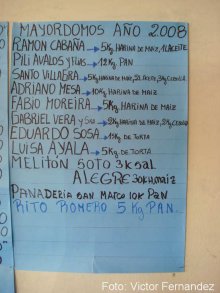 MAYORDOMOS AÑO 2008
RAMON CABAÑA → 5Kg. HARINA DE MAIZ, 1L ACEITE
PILI AVALOS Y Flia → 12 Kg. PAN
SANTO VILLALBA → 5Kg HARINA DE MAIZ, 2L ACEITE, 3Kg CEBOLLA
ADRIANO MESA → 10Kg. HARINA DE MAIZ
FABIO MOREIRA → 5Kg. HARINA DE MAIZ
GABRIEL VERA y Sra → 2Kg HARINA DE MAIZ, 2Kg CEBOLLA
EDUARDO SOSA → 15Kg DE TORTA
LUISA AYALA → 5Kg. DE TORTA
MELITÓN SOTO 3k sal
ALEGRE 30k H.maiz
PANADERIA SAN MARCO 10K PaN
RITO ROMERO 5 Kg PAN.
Foto: Victor Fernandez